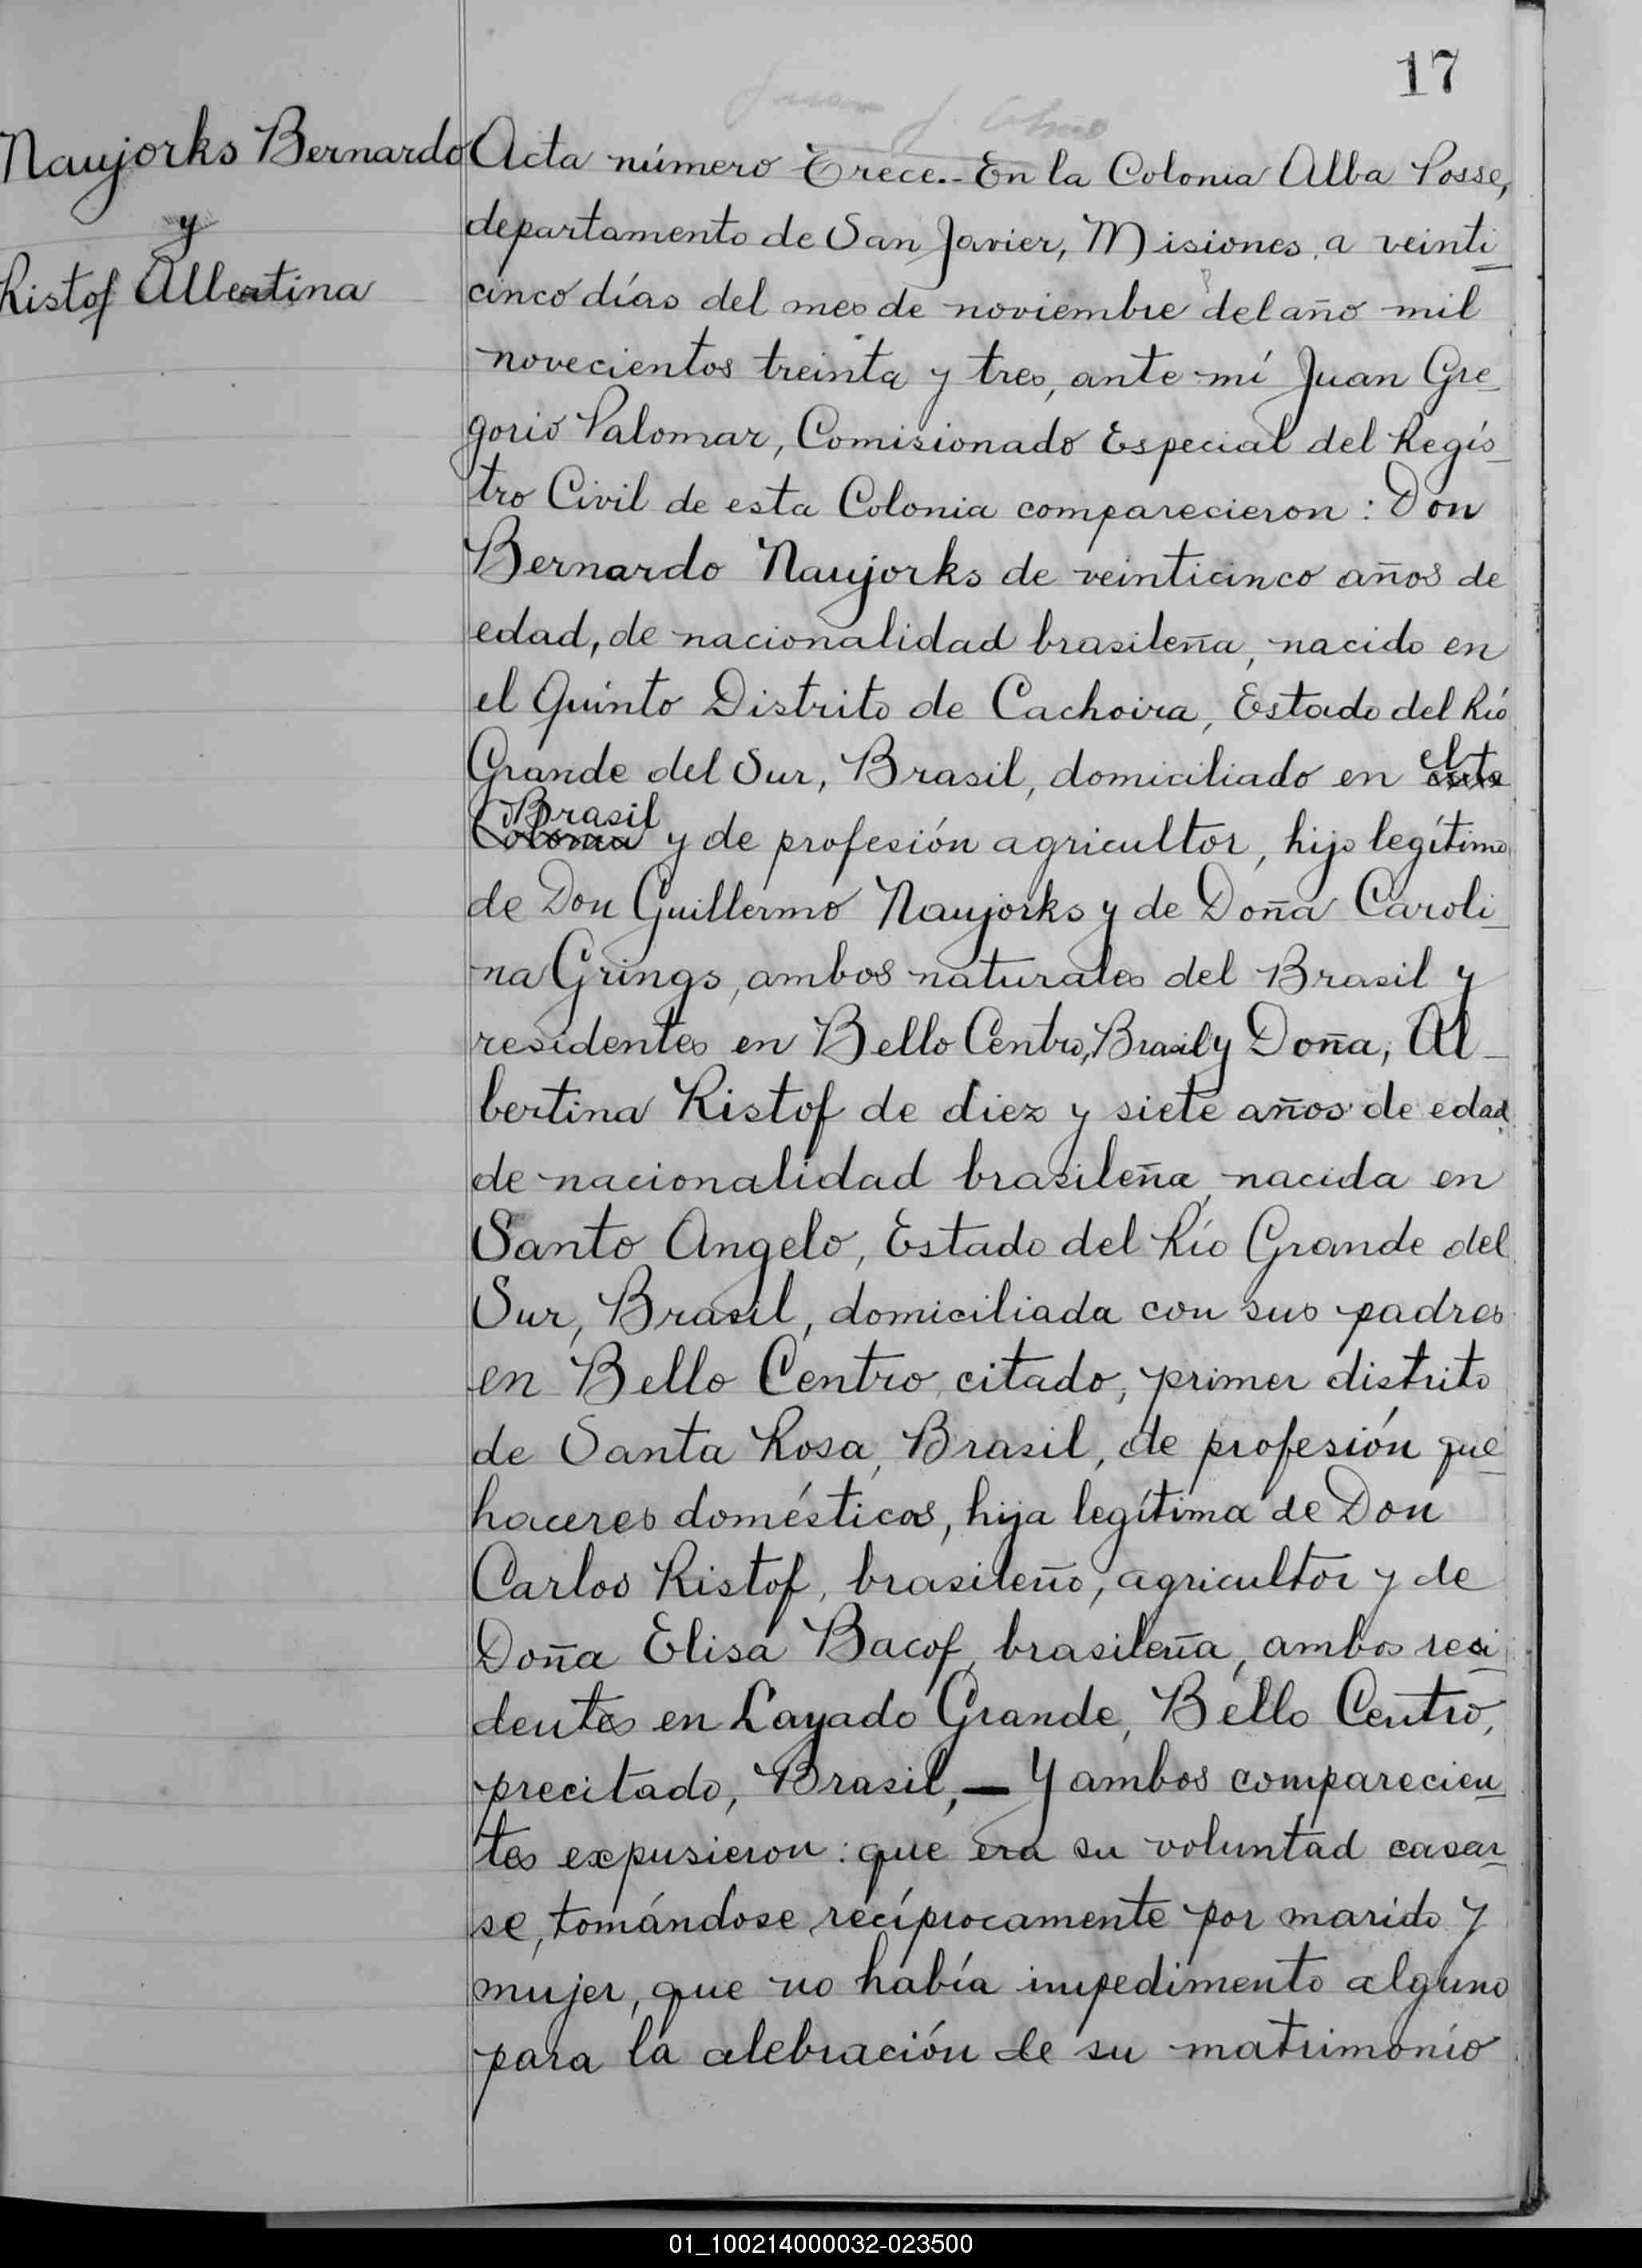 17
Naujorks Bernardo
y
Ristof Albertina
Acta número Trece.- En la Colonia Alba Posse,
departamento de San Javier, Misiones, a veinti
cinco días del mes de noviembre del año mil
novecientos treinta y tres, ante mí Juan Gre
gorio Palomar, Comisionado Especial del Regis
tro Civil de esta Colonia comparecieron: Don
Bernardo Naujorks de veinticinco años de
edad, de nacionalidad brasileña, nacido en
el Quinto Distrito de Cachoira, Estado del Río
Grande del Sur, Brasil, domiciliado en esta el
Colonia Brasil y de profesión agricultor, hijo legítimo
de Don Guillermo Naujorks y de Doña Caroli
na Grings, ambos naturales del Brasil y
residentes en Bello Centro, Brasil y Doña, Al
bertina Ristof de diez y siete años de edad,
de nacionalidad brasileña, nacida en
Santo Angelo, Estado del Río Grande del
Sur, Brasil, domiciliada con sus padres
en Bello Centro, citado, primer distrito
de Santa Rosa, Brasil, de profesión que
haceres domésticos, hija legítima de Don
Carlos Ristof, brasileño, agricultor y de
Doña Elisa Bacof, brasileña, ambos resi
dentes en Layado Grande, Bello Centro,
precitado, Brasil,— Y ambos comparecien
tes expusieron: que era su voluntad casar
se, tomándose recíprocamente por marido y
mujer, que no había impedimento alguno
para la celebración de su matrimonio
01_100214000032-023500